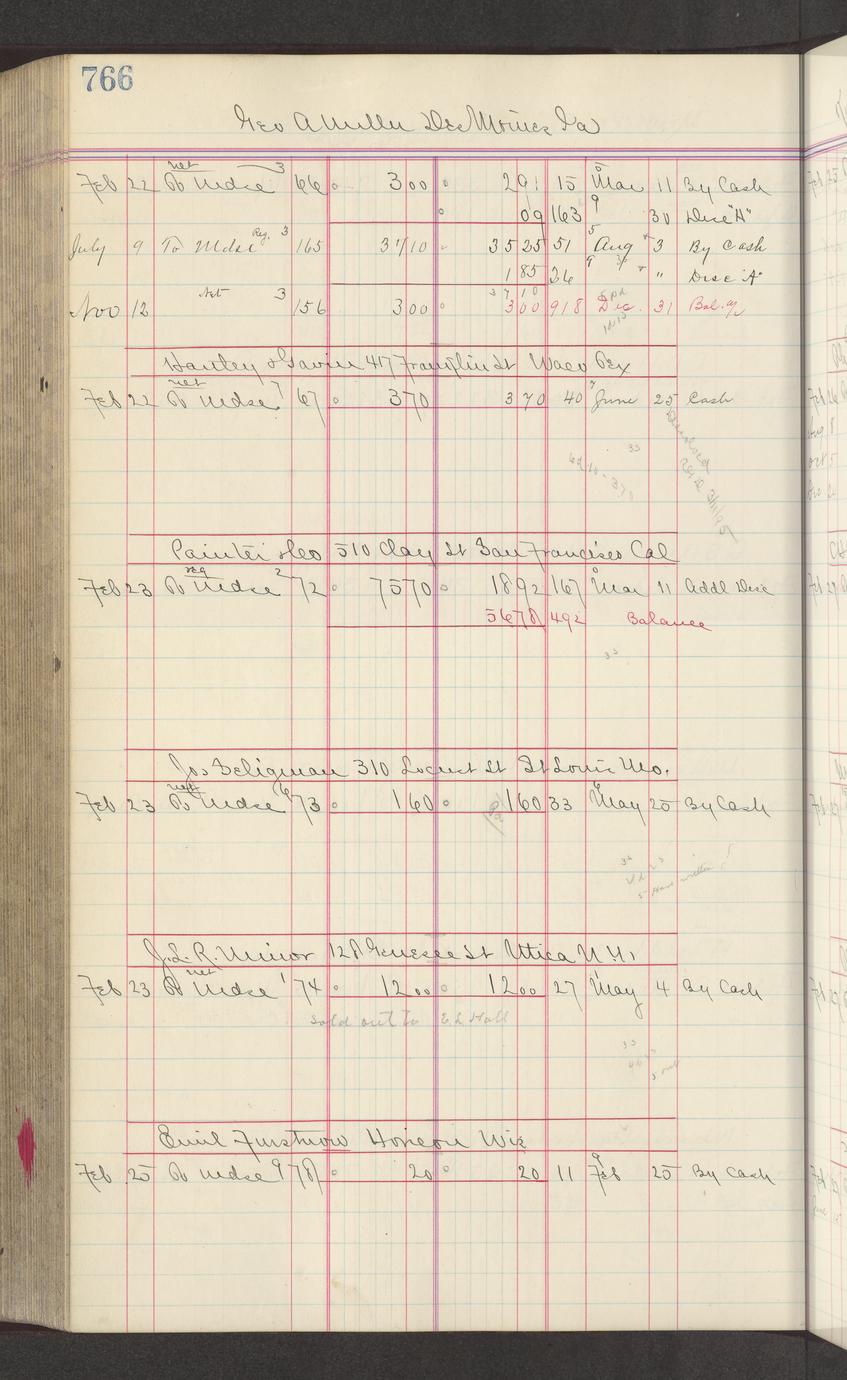 766
Geo A Miller Des Moines Ia
net 3
Feb 22 To Mdse 66 300 291 15 Mar 11 By Cash
09 163 30 Disc "A"
Reg. 3
July 9 To Mdse 165 3710 3525 51 Aug 3 By Cash
185 26 " Disc "A"
3710
Nov 12 Net 3 156 300 300 918 Dec. 31 Bal.
417 Franklin St Waco Tex
net 7
Feb 22 To Mdse 67 370 370 40 June 25 Cash
33
510 Clay St San Francisco Cal
reg 2
Feb 23 To Mdse 72 7570 1892 167 Mar 11 Addl Disc
5678 492 Balance
33
Jos Seligman 310 Locust St St Louis Mo.
net 6
Feb 23 To Mdse 73 160 160 33 May 25 By Cash
J. L. R. Minor 128 Genesee St Uttica N.Y.
net 1
Feb 23 To Mdse 74 1200 1200 27 May 4 By Cash
Sold out to E. L Hall
33
Emil Furstnow Horicon Wis
Feb 25 To Mdse 9 78 20 20 11 Feb 25 By Cash